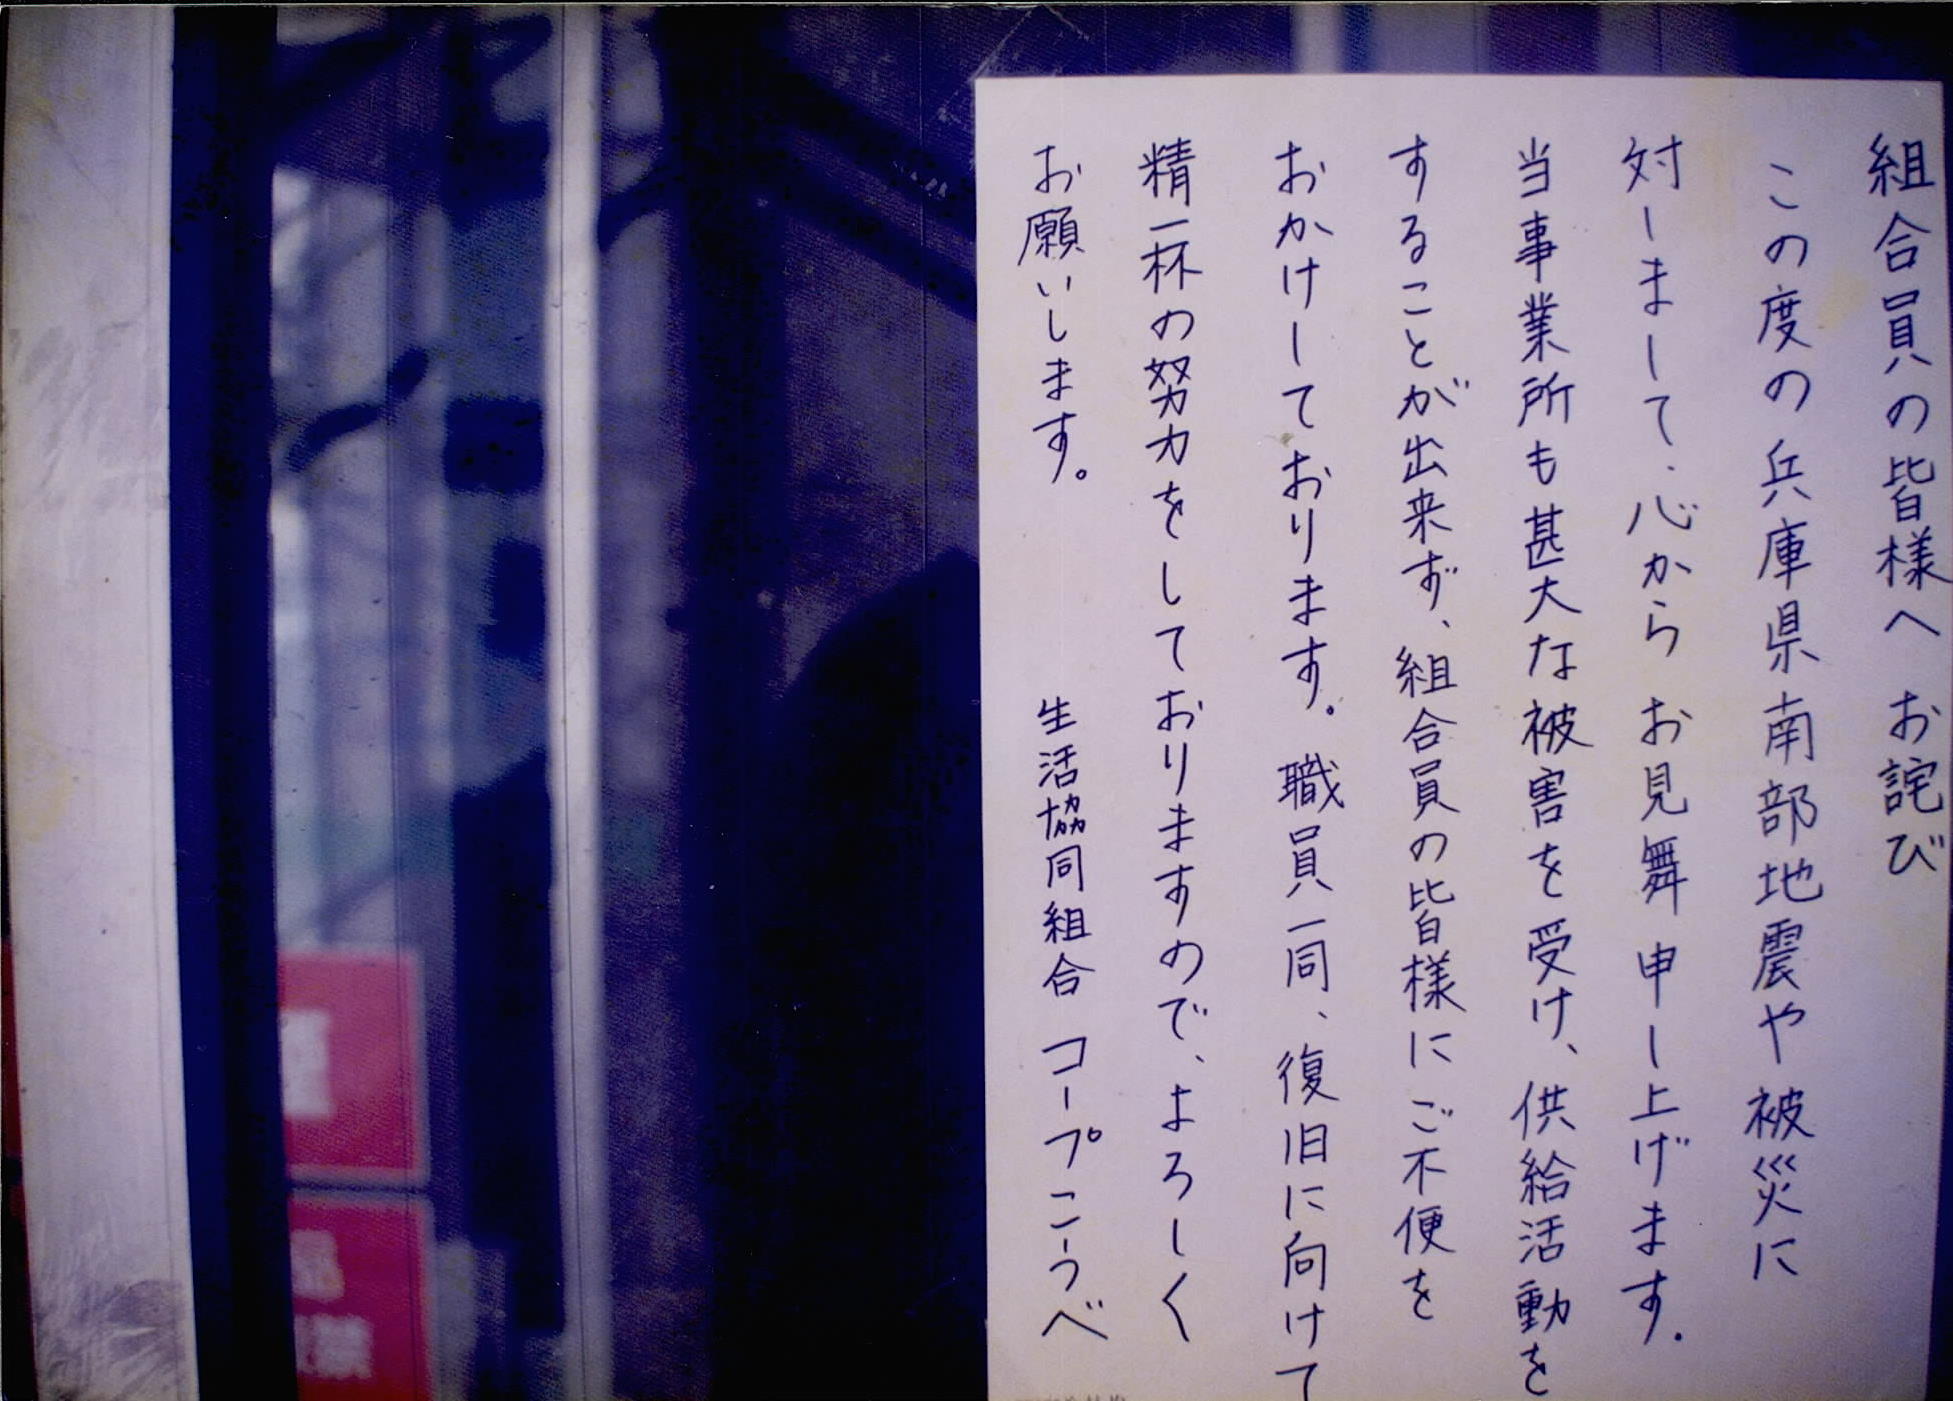 組合員の皆様へ お詫び
この度の兵庫県南部地震や被災に
対しまして、心からお見舞申し上げます。
当事業所も甚大な被害を受け、供給活動を
することが出来ず、組合員の皆様にご不便を
おかけしております。職員一同、復旧に向けて
精一杯の努力をしておりますので、よろしく
お願いします。
生活協同組合 コープこうべ
禁